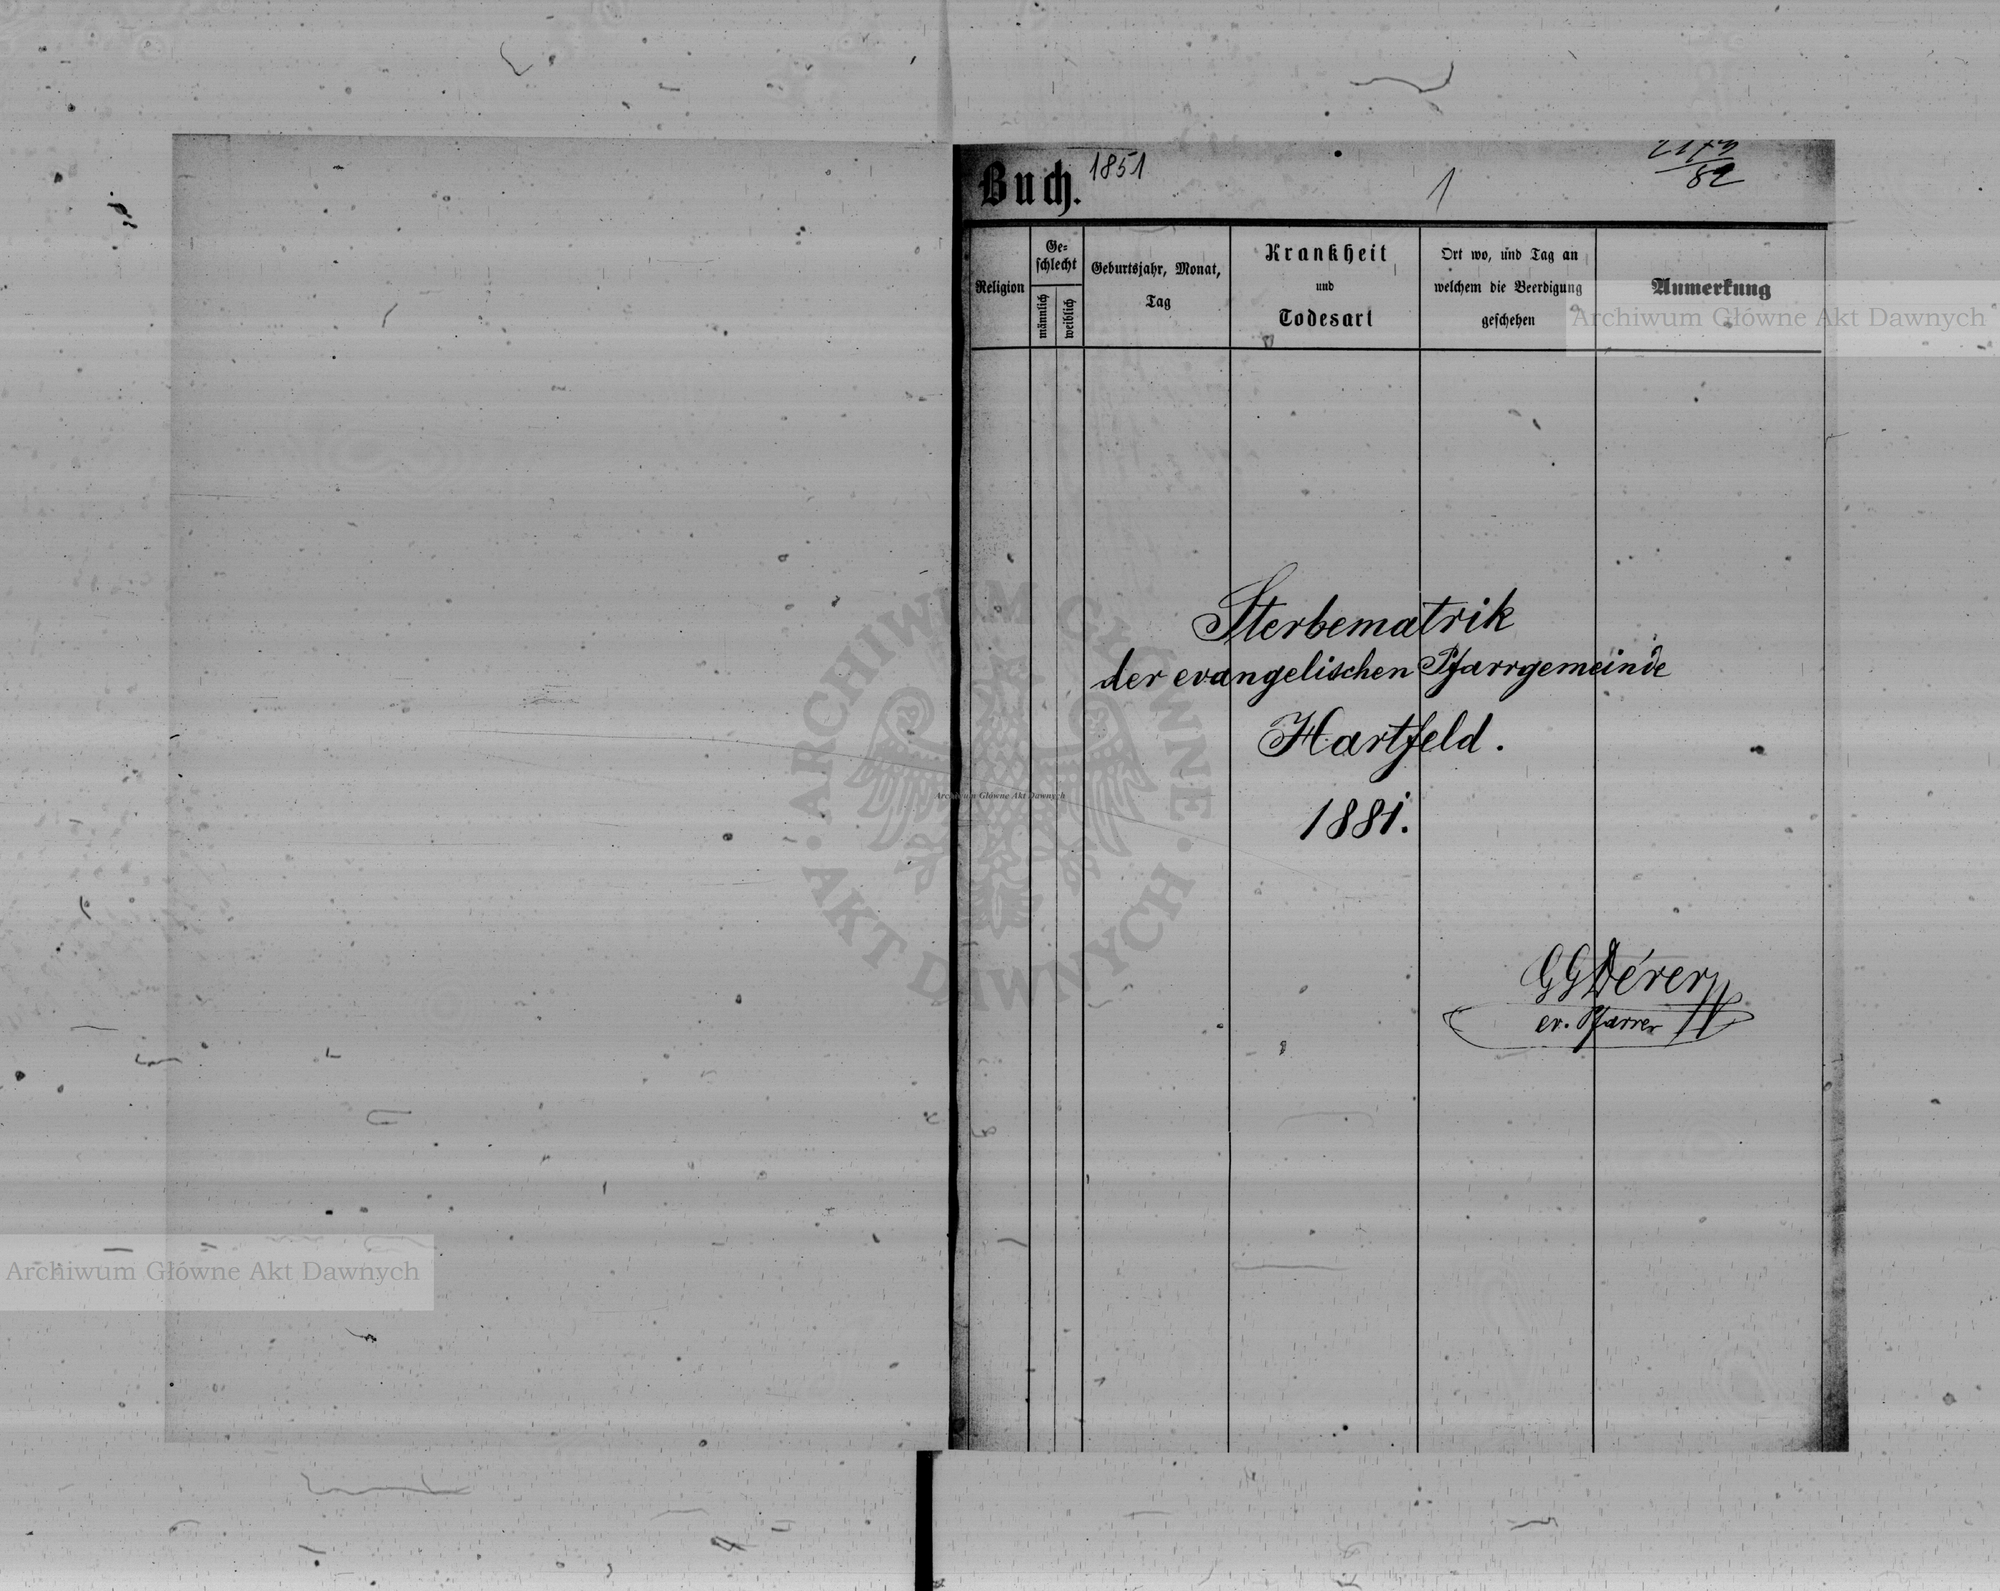 Buch. 1851
1
82
Religion
Ge-
schlecht
männlich
weiblich
Geburtsjahr, Monat,
Tag
Krankheit
und
Todesart
Ort wo, und Tag an
welchem die Beerdigung
geschehen
Anmerkung
Archiwum Główne Akt Dawnych
Sterbematrik
der evangelischen Pfarrgemeinde
Hartfeld.
1881.
ARCHIWUM GŁÓWNE
AKT DAWNYCH
Archiwum Główne Akt Dawnych
GGDérer
ev. Pfarrer
Archiwum Główne Akt Dawnych